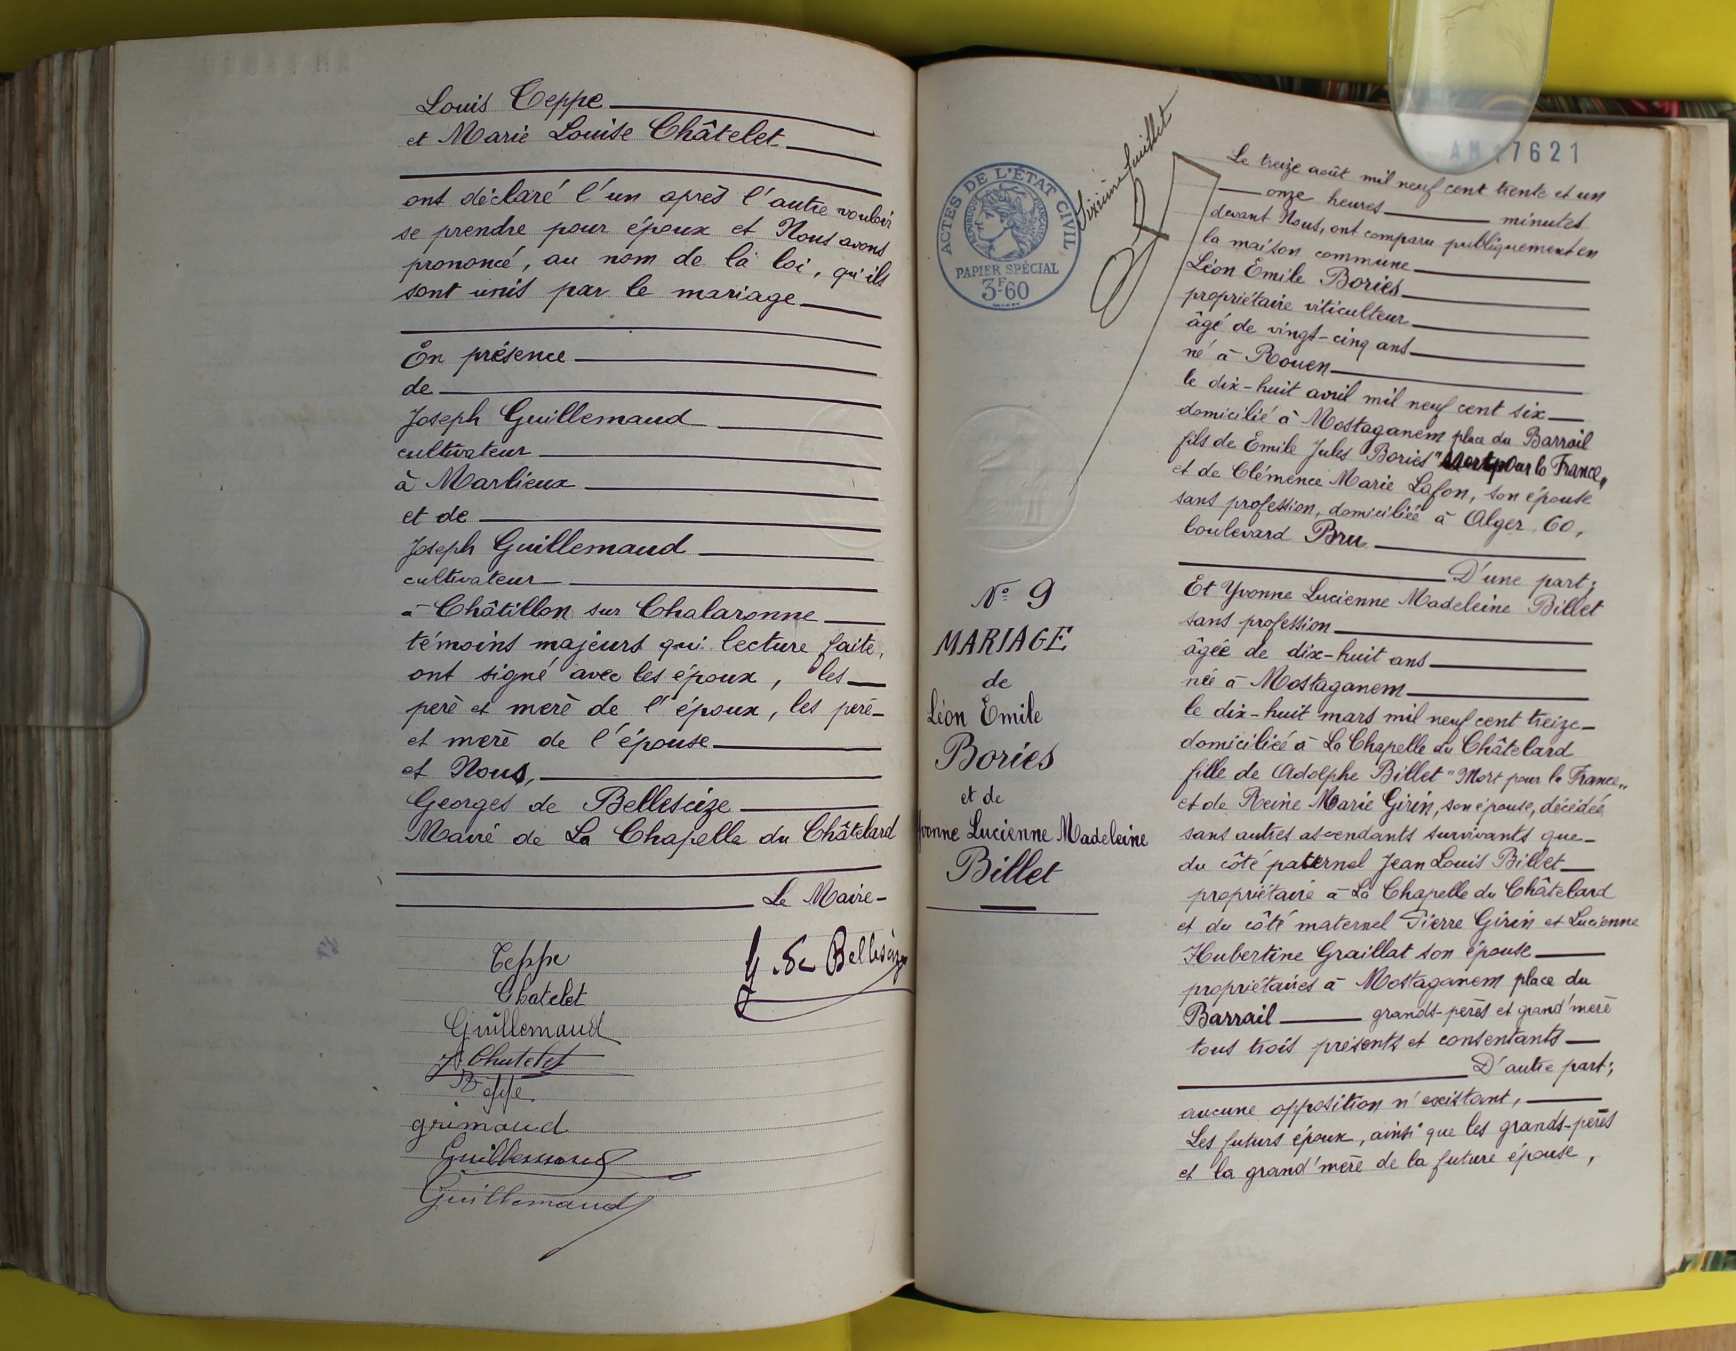 Louis Teppe
et Marie Louise Châtelet
ont déclaré l'un après l'autre vouloir
se prendre pour époux et Nous avons
prononcé, au nom de la loi, qu'ils
sont unis par le mariage
En présence
de
Joseph Guillemaud
cultivateur
à Marlieux
et de
Joseph Guillemaud
cultivateur
à Châtillon sur Chalaronne
témoins majeurs qui lecture faite,
ont signé avec les époux, les
père et mère de l'époux, les père
et mère de l'épouse
et Nous,
Georges de Bellescize
Maire de La Chapelle du Châtelard
Le Maire
Teppe
Chatelet
Guillemaud
Chatelet
Teppe
grimaud
Guillemaud
Guillemaud
G. de Bellescize
ACTES DE L'ÉTAT CIVIL
PAPIER SPÉCIAL
3F60
Sixième feuillet
N° 9
MARIAGE
de
Léon Emile
Bories
et de
Yvonne Lucienne Madeleine
Billet
17621
Le treize août mil neuf cent trente et un
onze heures minutes
devant Nous, ont comparu publiquement en
la maison commune
Léon Emile Bories
propriétaire viticulteur
âgé de vingt-cinq ans
né à Rouen
le dix-huit avril mil neuf cent six
domicilié à Mostaganem place du Barrail
fils de Emile Jules Bories "Mort pour la France"
et de Clémence Marie Lafon, son épouse
sans profession, domiciliée à Alger 60,
boulevard Bru
D'une part;
Et Yvonne Lucienne Madeleine Billet
sans profession
âgée de dix-huit ans
née à Mostaganem
le dix-huit mars mil neuf cent treize
domiciliée à La Chapelle du Châtelard
fille de Adolphe Billet "Mort pour la France"
et de Reine Marie Girin, son épouse, décédée
sans autres ascendants survivants que
du côté paternel Jean Louis Billet
propriétaire à La Chapelle du Châtelard
et du côté maternel Pierre Girin et Lucienne
Hubertine Graillat son épouse
propriétaires à Mostaganem place du
Barrail grands-pères et grand'mère
tous trois présents et consentants
D'autre part;
aucune opposition n'existant,
Les futurs époux, ainsi que les grands-pères
et la grand'mère de la future épouse,